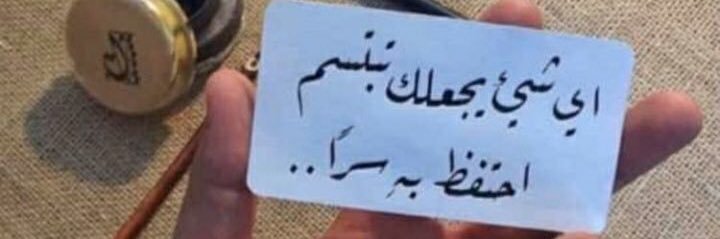 اي شيئ يجعلك تبتسم
احتفظ به سرًا ..